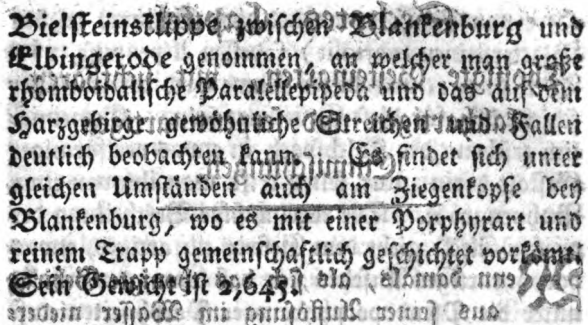 Bielsteinsklippe zwischen Blankenburg und
Elbingerode genommen, an welcher man große
rhomboidalische Paralellepipeda und das auf dem
Harzgebirge gewöhnliche Streichen und Fallen
deutlich beobachten kann. Es findet sich unter
gleichen Umständen auch am Ziegenkopfe bey
Blankenburg, wo es mit einer Porphyrart und
reinem Trapp gemeinschaftlich geschichtet vorkömt.
Sein Gewicht ist 2,645.